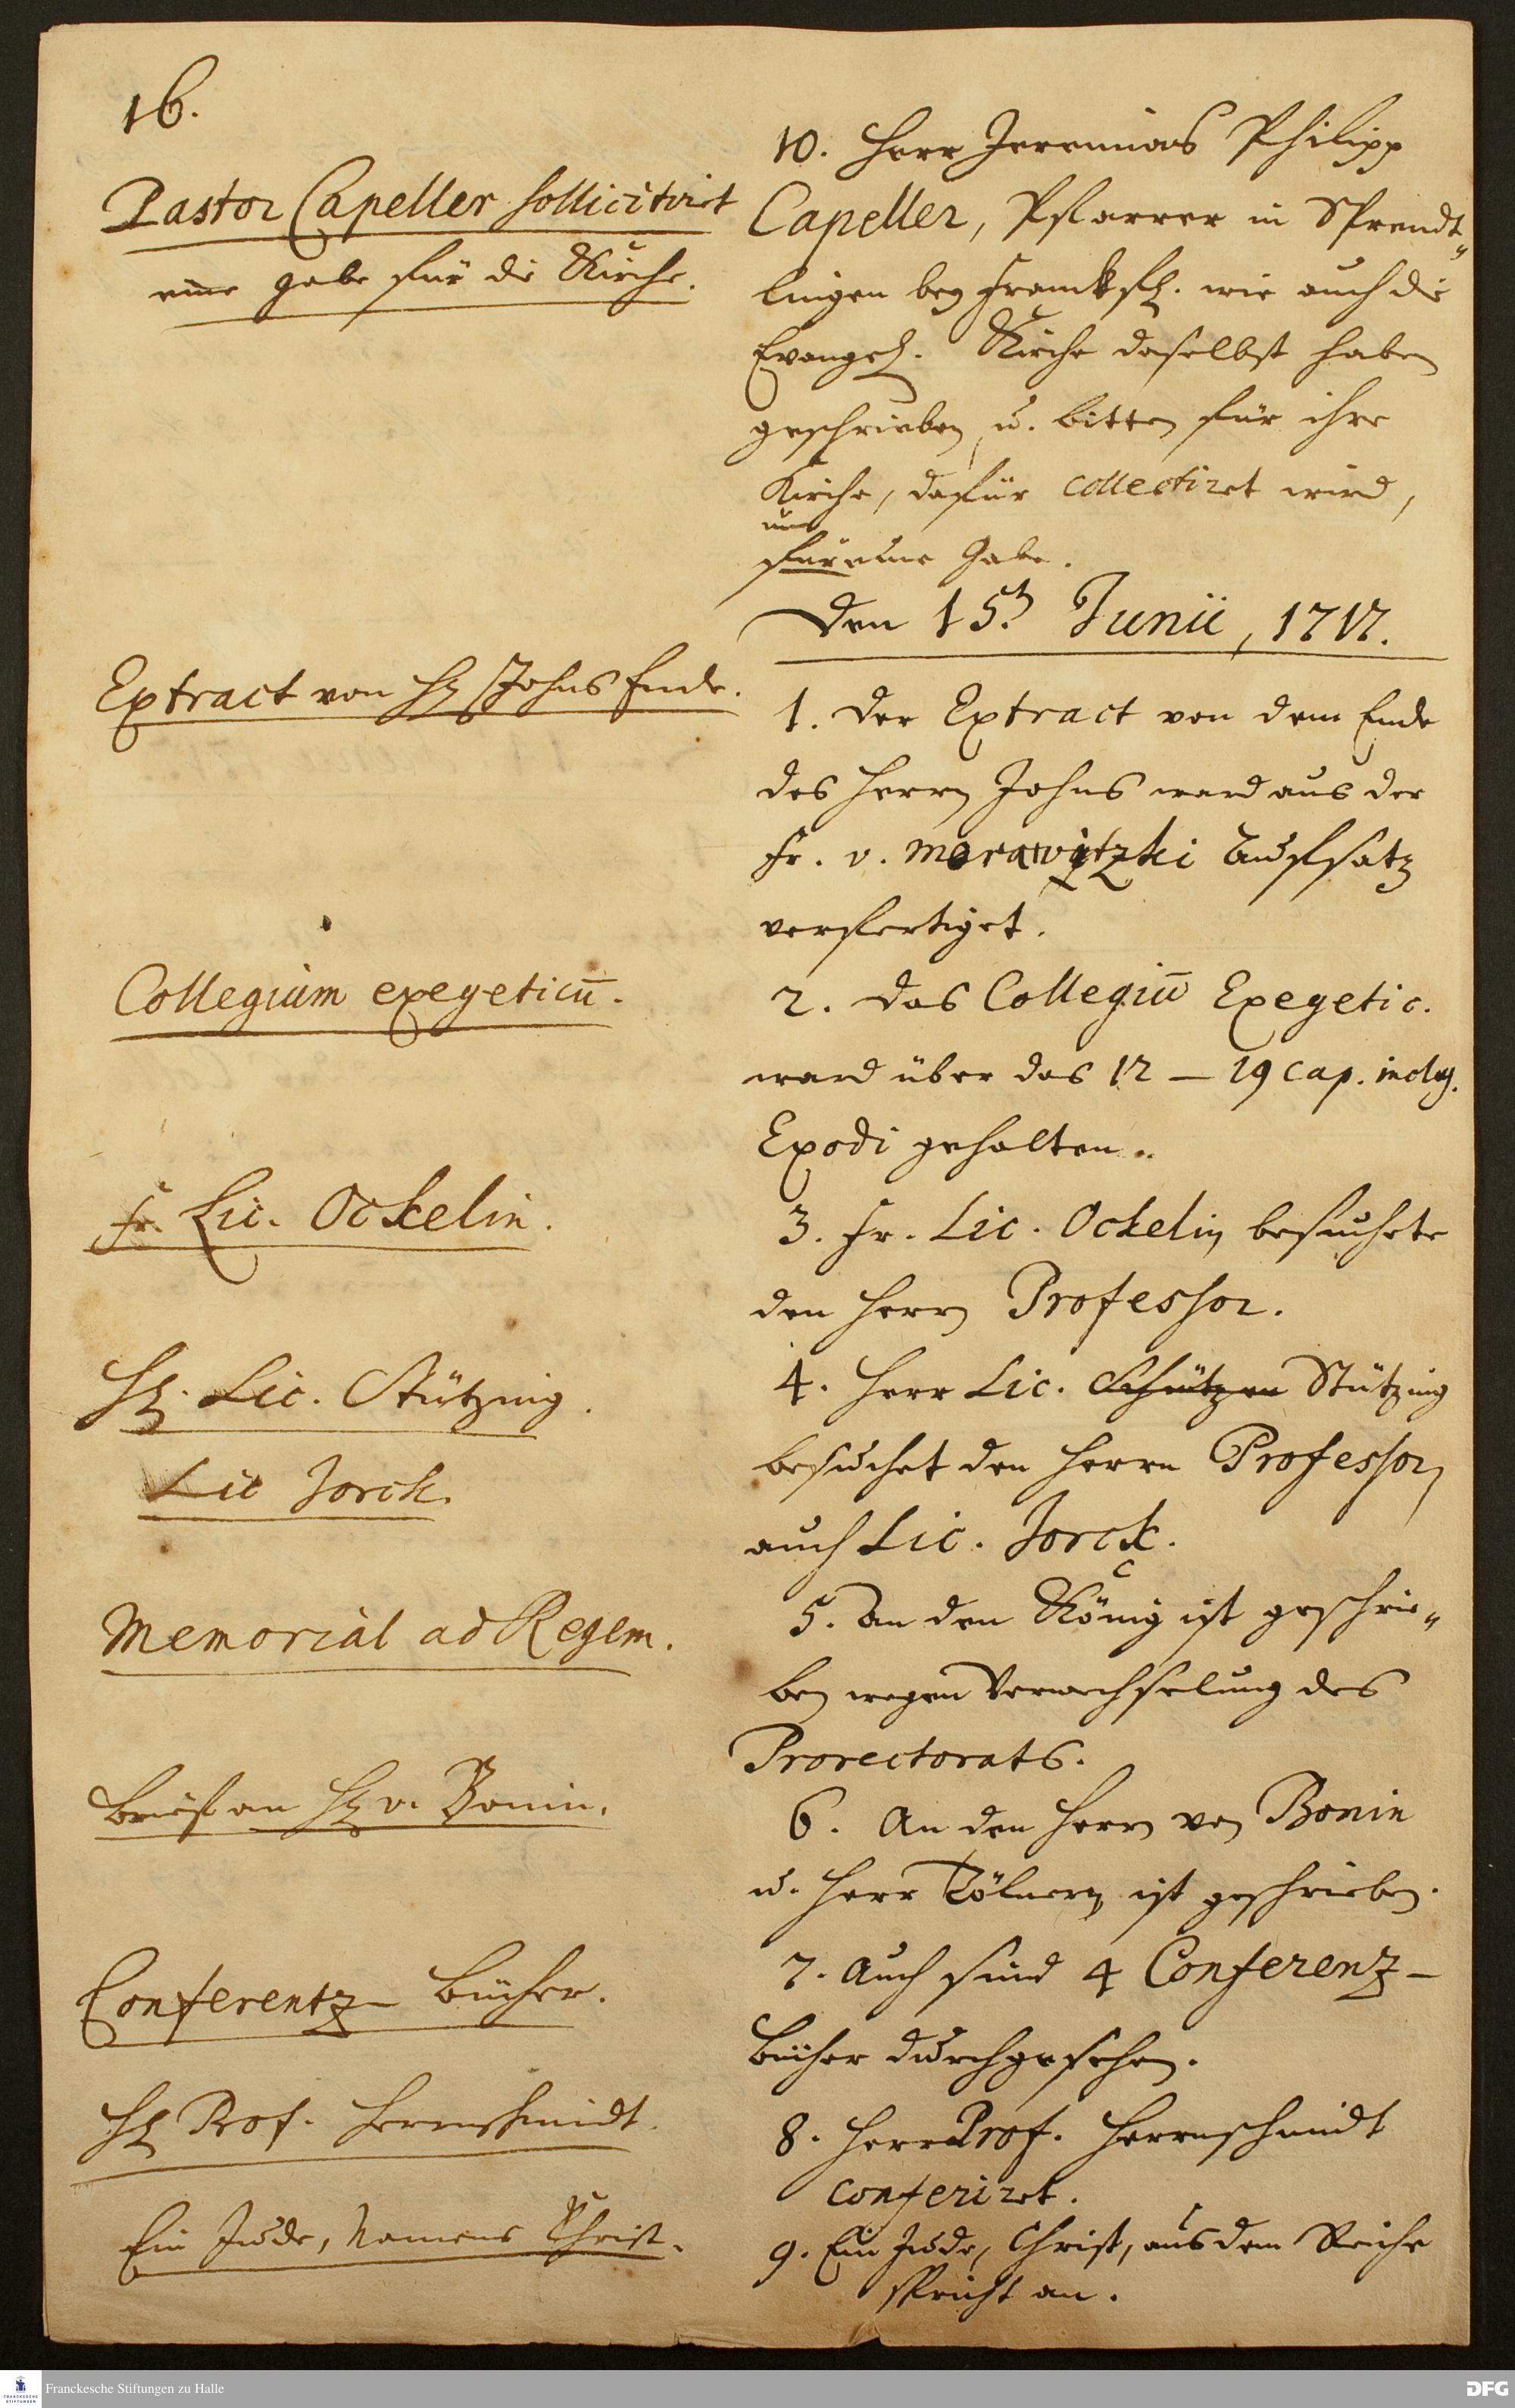 16.
Pastor Capeller sollicitiret
eine gabe für die Kirche.
10. Herr Jeremias Philipp
Capeller, Pfarrer in Sprendt„
lingen bey Franckf. wie auch die
Evangel. Kirche daselbst haben
geschrieben u. bitten für ihre
Kirche, dafür collectiret wird,
um
für eine Gabe.
Den 15.t Junii, 1717.
Extract von H. Johns Ende.
1. Der Extract von dem Ende
des Herrn Johns ward aus der
Fr. v. Morawitzki Auffsatz
verfertiget.
Collegium exegeticū.
2. Das Collegiū Exegetic.
ward über das 12 – 19 cap. incl.
Exodi gehalten.
Fr. Lic. Ockelin.
3. Fr. Lic. Ockelin besuchete
den Herrn Professor.
H. Lic. Stützing.
Lic Jorck.
4. Herr Lic. Schützen Stützing
besuchet den Herrn Professor,
auch Lic. Jorck.
Memorial ad Regem.
5. An den König ist geschrie„
ben wegen Verwechselung des
Prorectorats.
Brief an H. v. Bonin.
6. An den Herrn von Bonin
u. Herr Tölnern ist geschrieben.
Conferentz- Bücher.
7. Auch sind 4 Conferenz-
bücher durchgesehen.
H. Prof. Herrnschmidt.
8. Herr Prof. Herrnschmidt
conferiret.
Ein Jude, Namens Christ.
9. Ein Jude, Christ, aus dem Reiche
spricht an.
Franckesche Stiftungen zu Halle
DFG